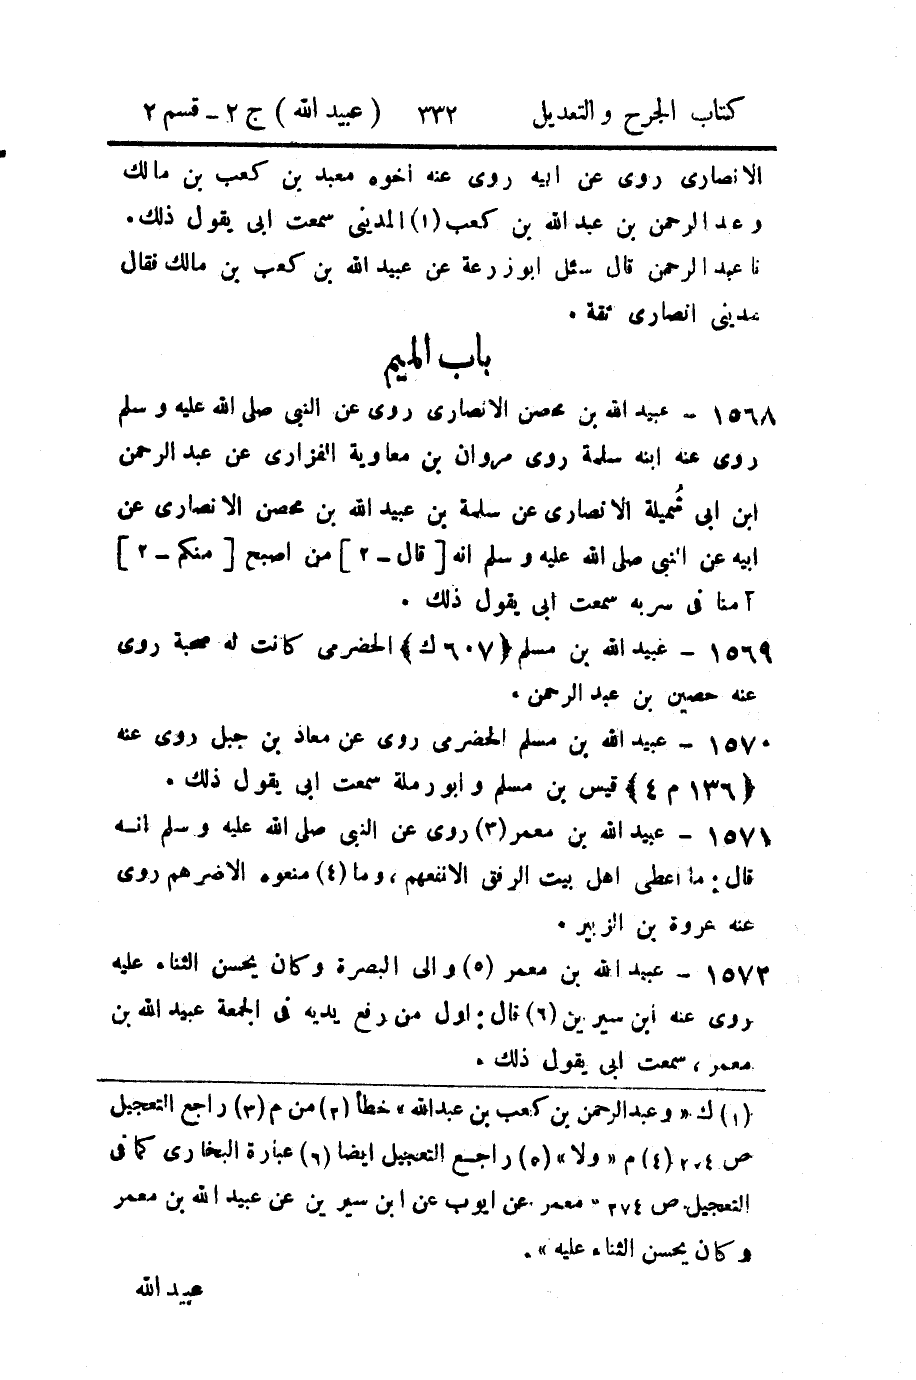 كتاب الجرح والتعديل ٣٣٢ (عبيد الله) ج ٢ - قسم ٢
الانصارى روى عن ابيه روى عنه اخوه معبد بن كعب بن مالك
وعبد الرحمن بن عبد الله بن كعب (١) المدينى سمعت ابى يقول ذلك.
نا عبد الرحمن قال سئل ابو زرعة عن عبيد الله بن كعب بن مالك فقال
مدينى انصارى ثقة.
باب الميم
١٥٦٨ - عبيد الله بن محصن الانصارى روى عن النبى صلى الله عليه وسلم
روى عنه ابنه سلمة روى مروان بن معاوية الفزارى عن عبد الرحمن
ابن ابى شُميلة الانصارى عن سلمة بن عبيد الله بن محصن الانصارى عن
ابيه عن النبى صلى الله عليه وسلم انه [قال - ٢] من اصبح [منكم - ٢]
آمنا فى سربه سمعت ابى يقول ذلك.
١٥٦٩ - عبيد الله بن مسلم ﴿٦٠٧ ك﴾ الحضرمى كانت له صحبة روى
عنه حصين بن عبد الرحمن.
١٥٧٠ - عبيد الله بن مسلم الحضرمى روى عن معاذ بن جبل روى عنه
﴿١٣٦ م ٤﴾ قيس بن مسلم وابو رملة سمعت ابى يقول ذلك.
١٥٧١ - عبيد الله بن معمر (٣) روى عن النبى صلى الله عليه وسلم انـه
قال: ما اعطى اهل بيت الرفق الا نفعهم، وما (٤) منعوه الا ضرهم روى
عنه عروة بن الزبير.
١٥٧٢ - عبيد الله بن معمر (٥) والى البصرة وكان يحسن الثناء عليه
روى عنه ابن سيرين (٦) قال: اول من رفع يديه فى الجمعة عبيد الله بن
معمر، سمعت ابى يقول ذلك.
(١) ك «وعبدالرحمن بن كعب بن عبدالله» خطأ (٢) من م (٣) راجع التعجيل
ص ٢٧٤ (٤) م «ولا» (٥) راجع التعجيل ايضا (٦) عبارة البخارى كما فى
التعجيل ص ٢٧٤ " معمر عن ايوب عن ابن سيرين عن عبيد الله بن معمر
وكان يحسن الثناء عليه».
عبيد الله